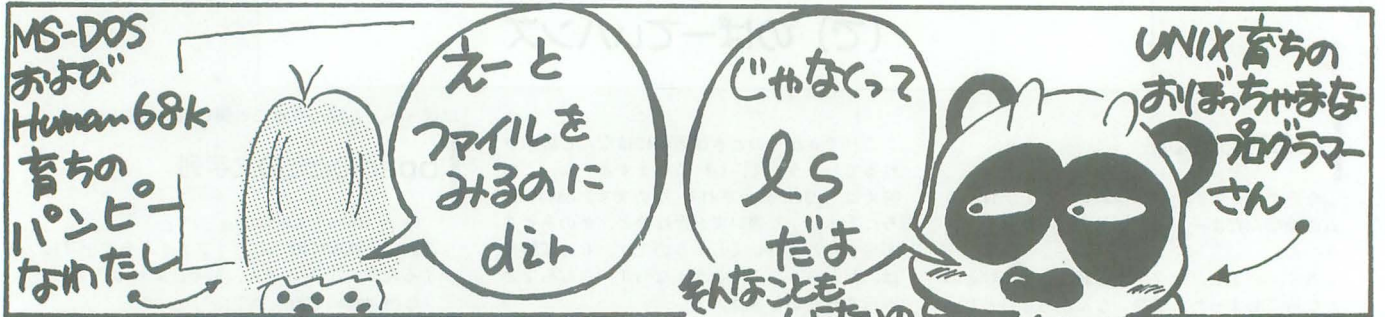 MS-DOS
および
Human68k
育ちの
パンピー
なわたし
えーと
ファイルを
みるのに
dir
じゃなくって
ls
だよ
そんなことも
UNIX育ちの
おぼっちゃまな
プログラマー
さん